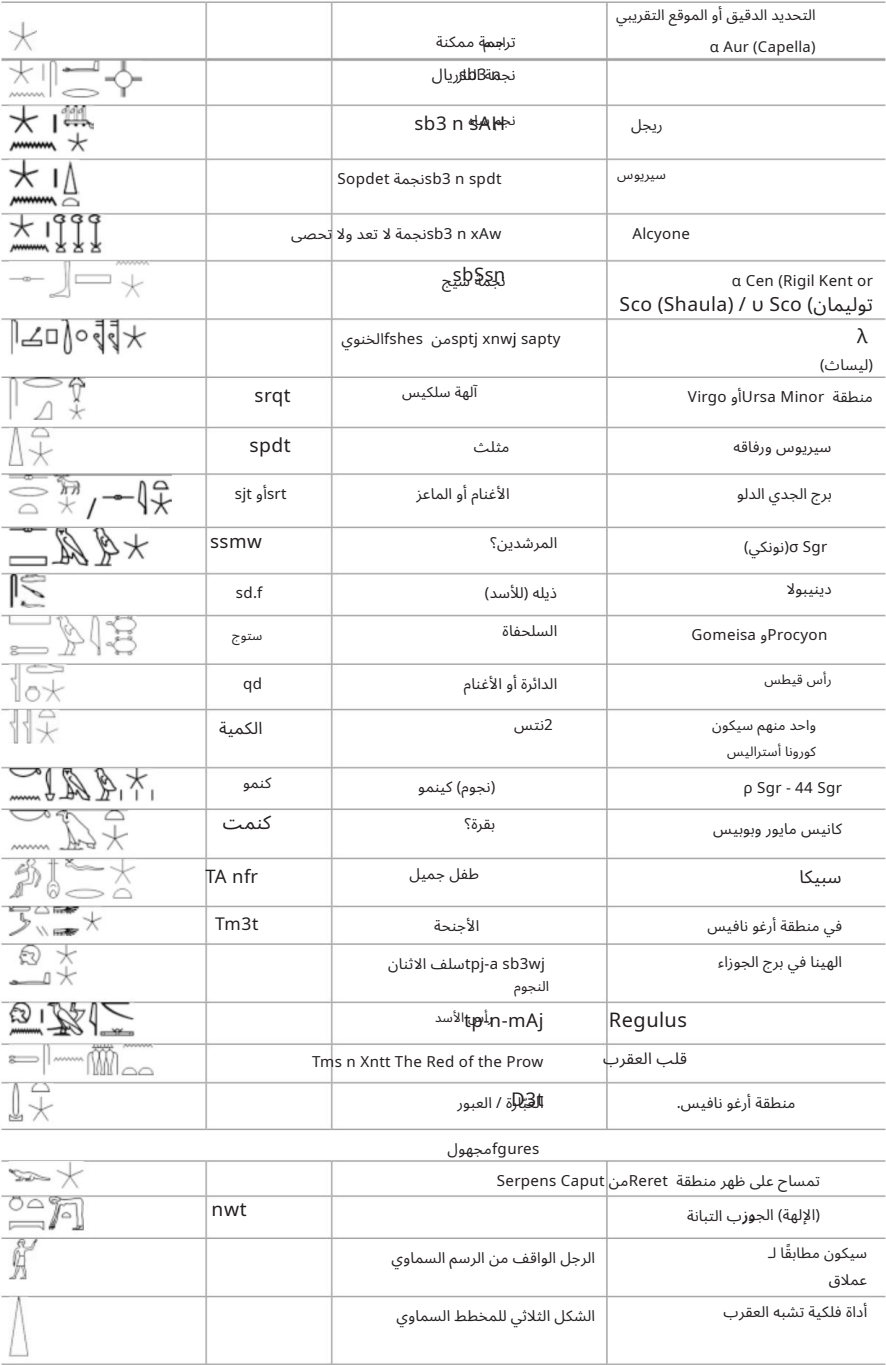 التحديد الدقيق أو الموقع التقريبي
ترجمة ممكنة
α Aur (Capella)
sb3 n sAH
ريجل
sb3 n spdt نجمة Sopdet
سيريوس
sb3 n xAw نجمة لا تعد ولا تحصى
Alcyone
sbSsn
نجمة سيج
α Cen (Rigil Kent or
توليمان) Sco (Shaula) / υ Sco
sptj xnwj sapty من fshes الخنوي
λ
(ليساث)
srqt
آلهة سلكيس
منطقة Ursa Minor أو Virgo
spdt
مثلث
سيريوس ورفاقه
srt أو sjt
الأغنام أو الماعز
برج الجدي الدلو
ssmw
المرشدين؟
σ Sgr (نونكي)
sd.f
ذيله (للأسد)
دينيبولا
ستوج
السلحفاة
Procyon و Gomeisa
qd
الدائرة أو الأغنام
رأس قيطس
الكمية
2نتس
واحد منهم سيكون
كورونا أستراليس
كنمو
(نجوم) كينمو
ρ Sgr - 44 Sgr
كنمت
بقرة؟
كانيس مايور وبوبيس
TA nfr
طفل جميل
سبيكا
Tm3t
الأجنحة
في منطقة أرغو نافيس
tpj-a sb3wj سلف الاثنان
النجوم
الهينا في برج الجوزاء
tp-n-mAj
رأس الأسد
Regulus
Tms n Xntt The Red of the Prow
قلب العقرب
D3t
العبّارة / العبور
منطقة أرغو نافيس.
fgures مجهول
تمساح على ظهر منطقة Reret من Serpens Caput
nwt
(الإلهة) الجوزب التبانة
الرجل الواقف من الرسم السماوي
سيكون مطابقًا لـ
عملاق
الشكل الثلاثي للمخطط السماوي
أداة فلكية تشبه العقرب